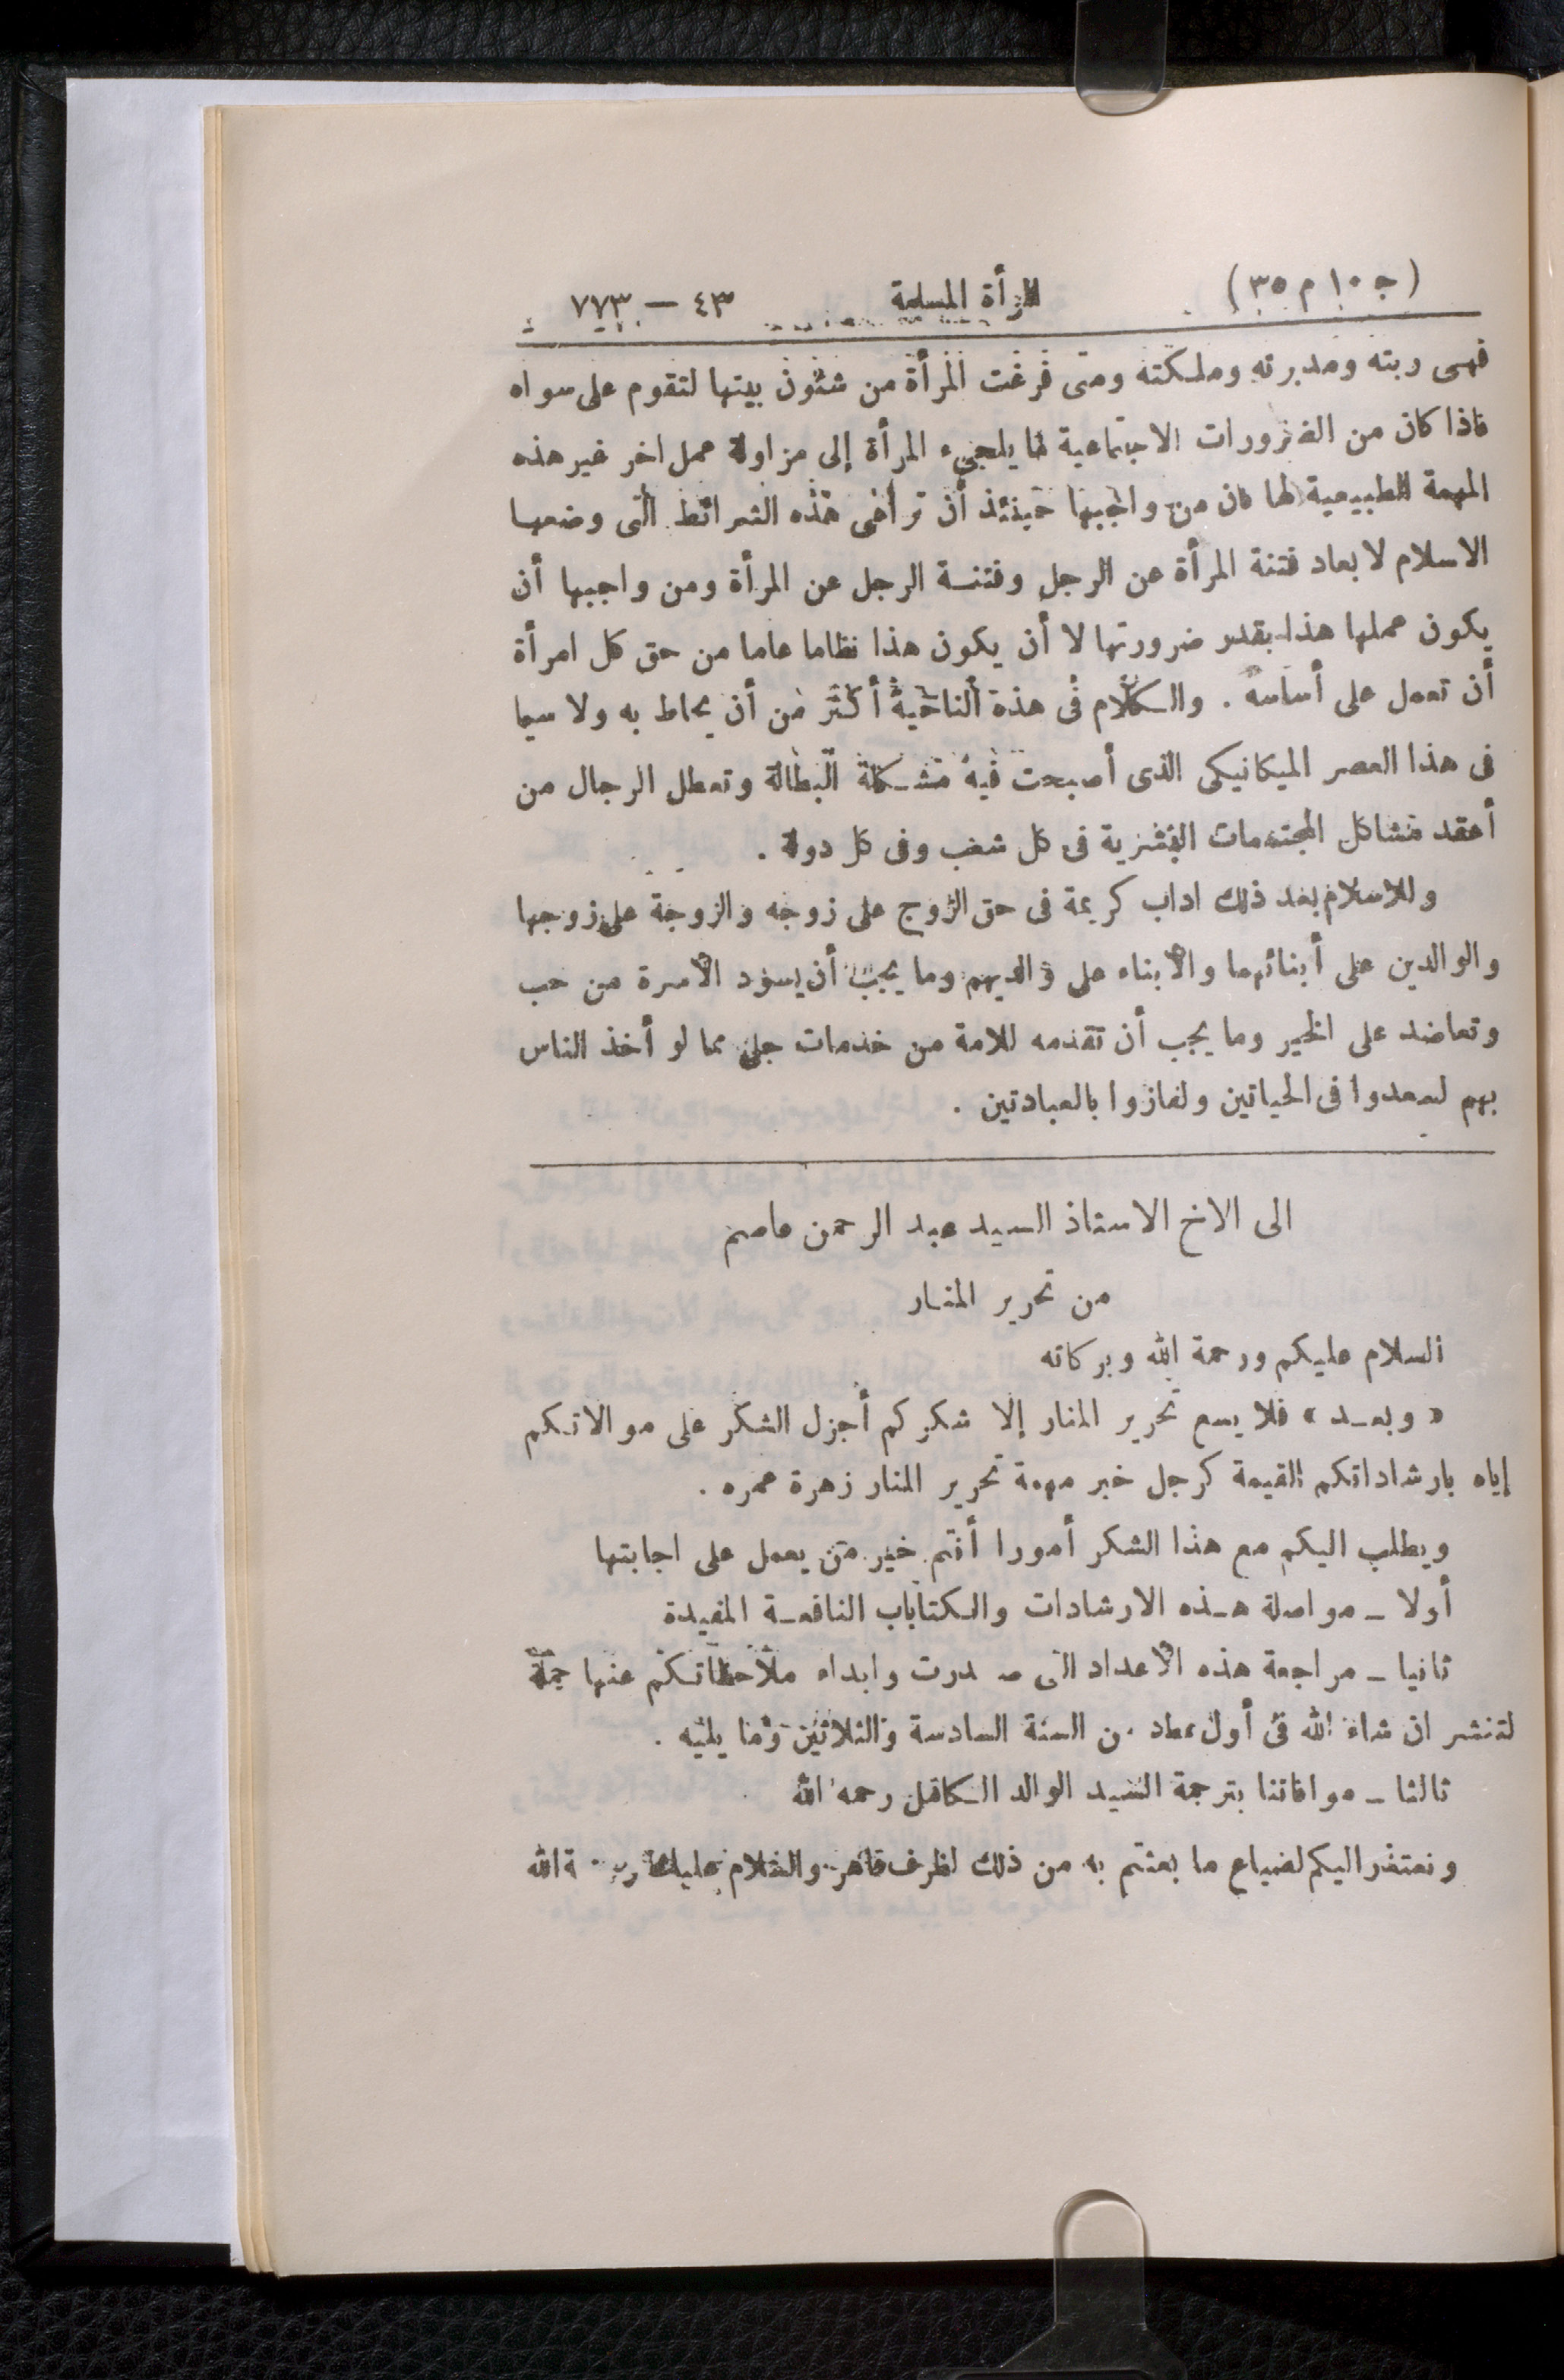 (ج ١٠ م ٣٥) المرأة المسلمة ٤٣ — ٧٧٣
فهى ربته ومدبرته وملكته ومتى فرغت المرأة من شئون بيتها لتقوم على سواه
فاذا كان من الضرورات الاجتماعية ما يلجىء المرأة إلى مزاولة عمل اخر غير هذه
المهمة الطبيعية لها كان من واجبها حينئذ أن تراعى هذه الشرائط التى وضعها
الاسلام لابعاد فتنة المرأة عن الرجل وفتنة الرجل عن المرأة ومن واجبها أن
يكون عملها هذا بقدر ضرورتها لا أن يكون هذا نظاما عاما من حق كل امرأة
أن تعمل على أساسه . والكلام فى هذة الناحية أكثر من أن يحاط به ولا سيما
فى هذا العصر الميكانيكى الذى أصبحت فيه مشكلة البطالة وتعطل الرجال من
أعقد مشاكل المجتمعات البشرية فى كل شعب وفى كل دولة .
وللاسلام بعد ذلك اداب كريمة فى حق الزوج على زوجه والزوجة على زوجها
والوالدين على أبنائهما والأبناء على والديهم وما يجب أن يسود الأسرة من حب
وتعاضد على الخير وما يجب أن تقدمه للامة من خدمات جلى مما لو أخذ الناس
بهم لسعدوا فى الحياتين ولفازوا بالعبادتين .
الى الاخ الاستاذ السيد عبد الرحمن عاصم
من تحرير المنار
السلام عليكم ورحمة الله وبركاته
« وبعد » فلا يسع تحرير المنار إلا شكركم أجزل الشكر على موالاتكم
إياه بارشاداتكم القيمة كرجل خبر مهمة تحرير المنار زهرة عمره .
ويطلب اليكم مع هذا الشكر أمورا أنتم خير من يعمل على اجابتها
أولا – مواصلة هذه الارشادات والكتاباب النافعة المفيدة
ثانيا – مراجعة هذه الأعداد التى صدرت وابداء ملاحظاتكم عنها جملة
لتنشر ان شاء الله فى أول عداد من السنة السادسة والثلاثين وما يليه .
ثالثا – موافاتنا بترجمة السيد الوالد الكافل رحمه الله
ونعتذر اليكم لضياع ما بعثتم به من ذلك لظرف قاهر والسلام عليكم ورحمة الله